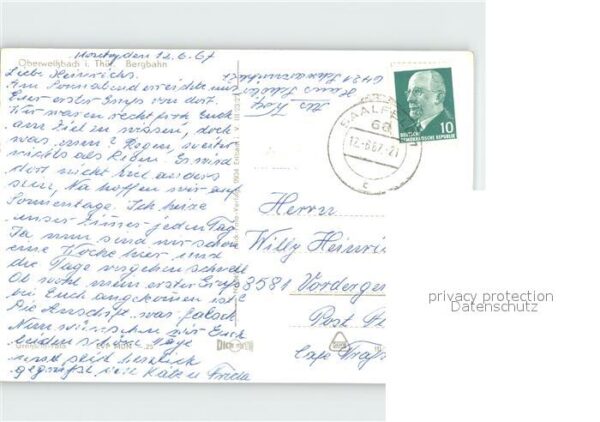 Montag den 12.6.67
Oberweißbach i. Thür. Bergbahn
Liebe Heinrichs.
Am Sonnabend erreichte uns
Euer erster Gruß von dort.
Wir waren recht froh Euch
am Ziel zu wissen, doch
was nun? Regen, weiter
nichts als Regen. Es wird
dort nicht viel anders
sein, Na hoffen wir auf
Sonnentage. Ich heize
unser Zimmer jeden Tag
Ja nun sind wir schon
eine Woche hier und
die Tage vergehen schnell
Ob wohl mein erster Gruß
bei Euch angekommen ist?
Die Anschrift war falsch
Nun wünschen wir Euch
schöne Tage
und seid herzlich
gegrüßt von Käte u Frieda
Abs.
Hans
6421
SAALFE
12.-6.67-21
c
DEUTSCHE
DEMOKRATISCHE REPUBLIK
10
Herrn
Willy Heinri
3581 Vorderger
Post
privacy protection
Datenschutz